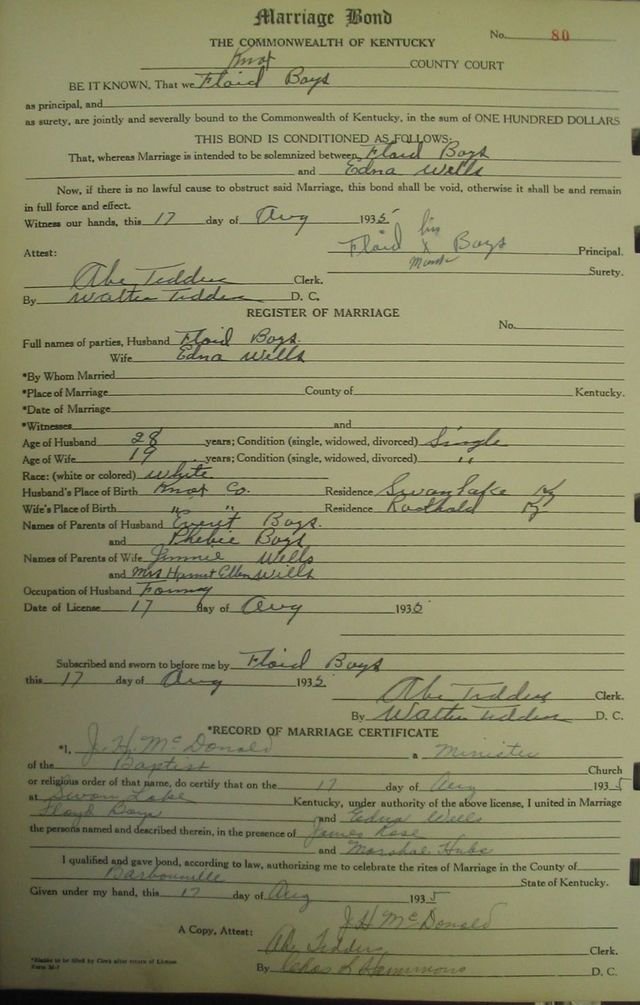 Marriage Bond
No. 80
THE COMMONWEALTH OF KENTUCKY
Knox COUNTY COURT
BE IT KNOWN, That we Floid Boys
as principal, and
as surety, are jointly and severally bound to the Commonwealth of Kentucky, in the sum of ONE HUNDRED DOLLARS
THIS BOND IS CONDITIONED AS FOLLOWS:
That, whereas Marriage is intended to be solemnized between Floid Boys
and Edna Wells
Now, if there is no lawful cause to obstruct said Marriage, this bond shall be void, otherwise it shall be and remain
in full force and effect.
Witness our hands, this 17 day of Aug 1935
Floid his x mark Boys Principal.
Attest:
Surety.
Abe Tedders Clerk.
By Walter Tedders D. C.
REGISTER OF MARRIAGE
No.
Full names of parties, Husband Floid Boys.
Wife Edna Wills
*By Whom Married
*Place of Marriage County of Kentucky.
*Date of Marriage
*Witnesses and
Age of Husband 28 years; Condition (single, widowed, divorced) Single
Age of Wife 19 years; Condition (single, widowed, divorced) "
Race: (white or colored) White
Husband's Place of Birth Knox Co. Residence Swan Lake Ky
Wife's Place of Birth " " Residence Ky
Names of Parents of Husband Everit Boys.
and Phebie Boys
Names of Parents of Wife Jimmie Wells
and Mrs Harriet Ellen Wills
Occupation of Husband
Date of License 17 day of Aug 1935
Subscribed and sworn to before me by Floid Boys
this 17 day of Aug 1935
Abe Tedders Clerk.
By Walter Tedders D. C.
*RECORD OF MARRIAGE CERTIFICATE
*I, J. H. McDonald a Minister
of the Baptist Church
or religious order of that name, do certify that on the 17 day of Aug 1935
at Swan Lake Kentucky, under authority of the above license, I united in Marriage
Floyd Boys and Edna Wells
the persons named and described therein, in the presence of James Rose
and Marshal Hubs
I qualified and gave bond, according to law, authorizing me to celebrate the rites of Marriage in the County of
Barbourville State of Kentucky.
Given under my hand, this 17 day of Aug 1935
J H McDonald
A Copy, Attest: Abe Tedders Clerk.
By Chas R Hammons D. C.
*Blanks to be filled by Clerk after return of License